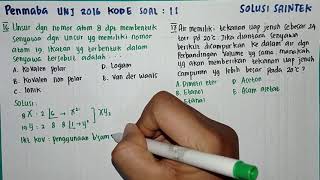 Penmaba UNJ 2016 KODE SOAL : 11
SOLUSI SAINTEK
16 Unsur dgn nomor atom 8 dpt membentuk
senyawa dgn unsur yg memiliki nomor
atom 19. Ikatan yg terbentuk dalam
senyawa tersebut adalah
A. Kovalen polar
D. Logam
B. Kovalen non polar
E. Van der waals
C. Ionik
Solusi :
8 X : 2 6 → X²⁻
19 Y : 2 8 8 1 → Y⁺
XY₂
Ikt kov : penggunaan b'sam
17 Air memiliki tekanan uap jenuh sebesar 24
torr pd 20°C. Jika diantara senyawa
berikut dicampurkan ke dalam air dgn
Perbandingan Volume yg sama manakah
yg akan memberikan tekanan uap jenuh
Campuran yg lebih besar pada 20°C ?
A. Dimetil eter
D. Aseton
B. Etanal
E. Asam asetat
Etanol